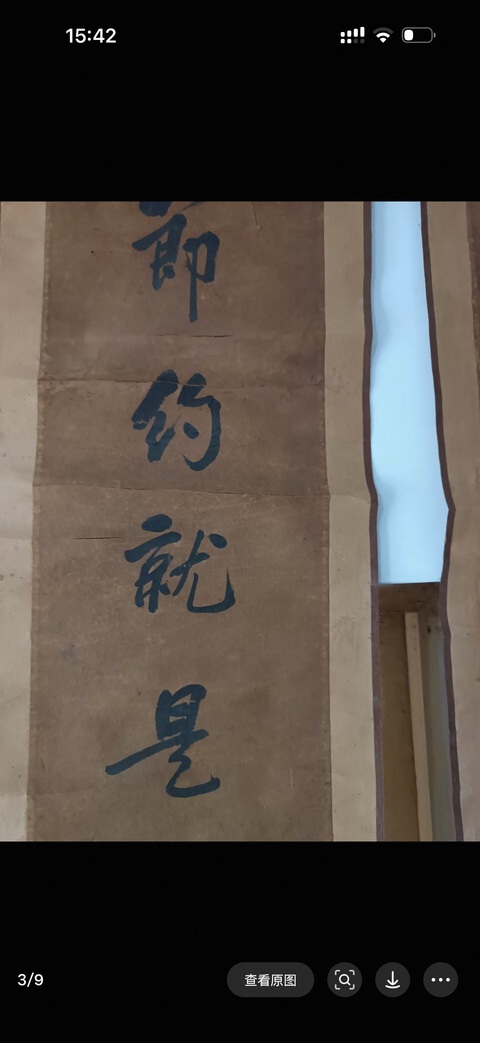 15:42
節
约
就
是
3/9
查看原图